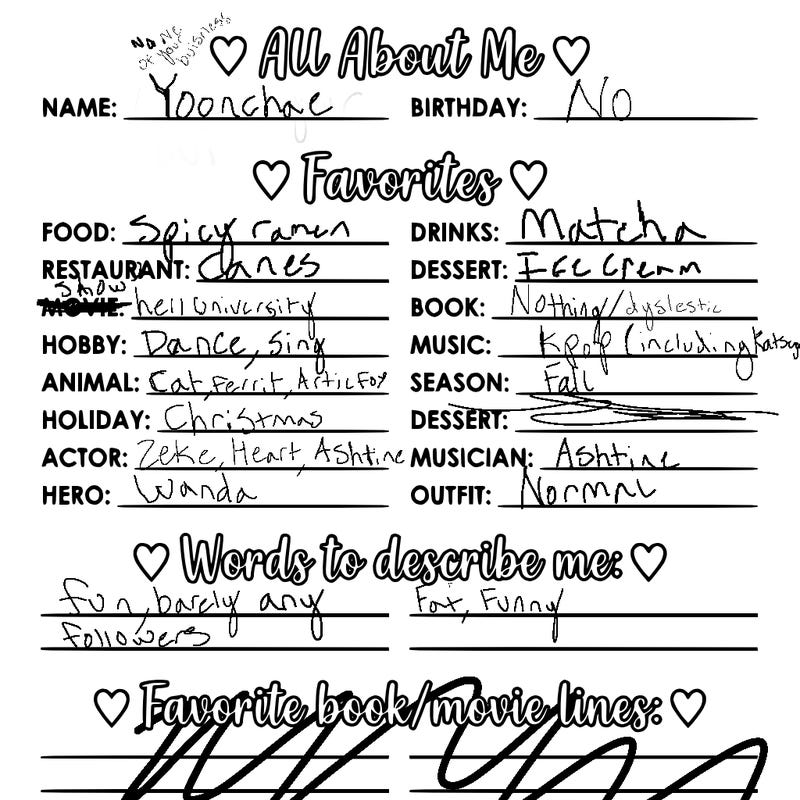 NoNe
of your
buisness
All About Me
NAME: Yoonchae BIRTHDAY: No
Favorites
FOOD: Spicy ramen DRINKS: Matcha
RESTAURANT: Canes DESSERT: Ice Cream
Show
MOVIE: hell University BOOK: Nothing/dyslestic
HOBBY: Dance, Sing MUSIC: Kpop (including Katseye
ANIMAL: Cat, Ferrit, Artic Fox SEASON: Fall
HOLIDAY: Christmas DESSERT:
ACTOR: Zeke, Heart, Ashtine MUSICIAN: Ashtine
HERO: Wanda OUTFIT: Normal
Words to describe me:
fun, barely any Fat, Funny
Followers
Favorite book/movie lines: